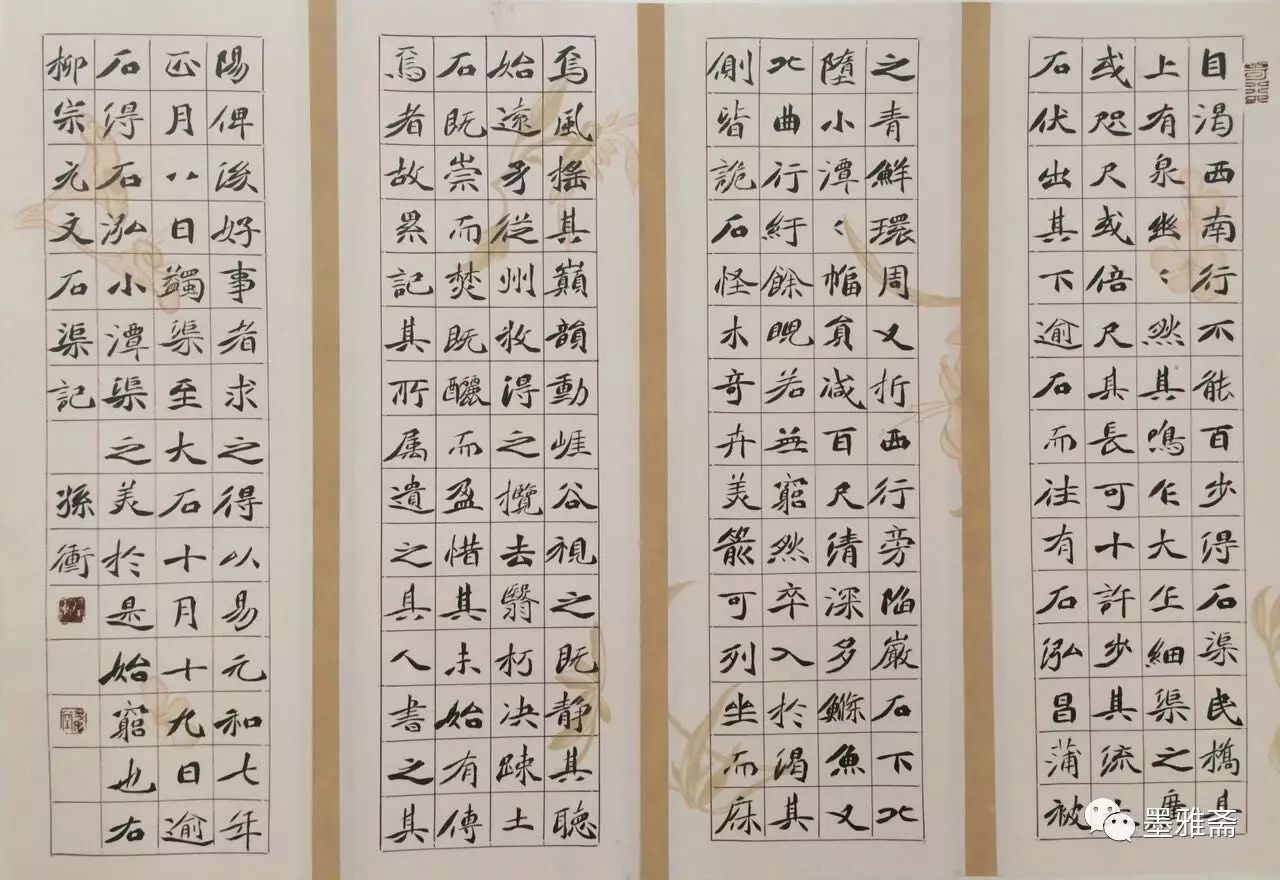 自渴西南行不能百步得石渠民橋其
上有泉幽〻然其鳴乍大乍細渠之廣
或咫尺或倍尺其長可十許步其流
石伏出其下逾石而往有石泓昌蒲被
之青鮮環周又折西行旁陷巖石下北
墮小潭〻幅員减百尺清深多鯈魚又
北曲行紆餘睨若無窮然卒入於渴其
側皆詭石怪木奇卉美箭可列坐而庥
焉風搖其巔韻動崖谷視之既静其聽
始遠予從州牧得之攬去翳朽决疎土
石既崇而焚既釃而盈惜其未始有傳
焉者故累記其所属遺之其人書之其
陽俾後好事者求之得以易元和七年
正月八日蠲渠至大石十月十九日逾
石得石泓小潭渠之美於是始窮也右
柳宗元文石渠記 孫衝
墨雅斋